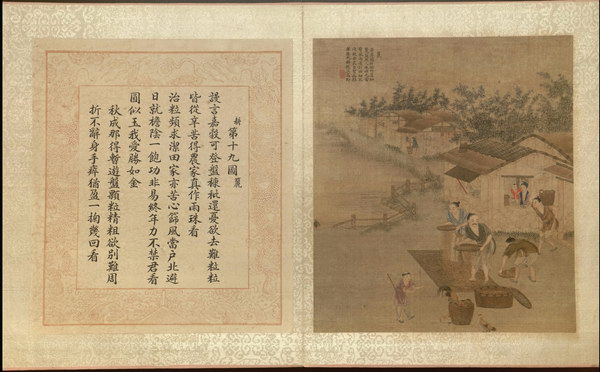 耕 第十九圖 簸
謾言嘉穀可登盤糠秕還憂欲去難粒粒
皆從辛苦得農家真作雨珠看
治粒頻求潔田家亦苦心篩風當戶北避
日就檐陰一飽功非易終年力不禁君看
圓似玉我愛勝如金
秋成那得暫遊盤顆粒精粗欲別難周
折不辭身手瘁猶盈一掬幾回看